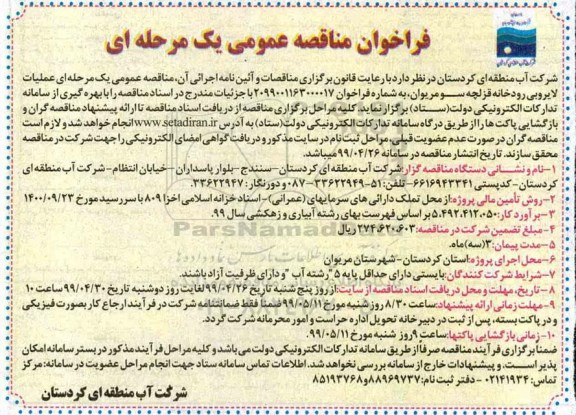 فراخوان مناقصه عمومی یک مرحله ای
شرکت آب منطقه ای کردستان در نظر دارد با رعایت قانون برگزاری مناقصات و آئین نامه اجرائی آن، مناقصه عمومی یک مرحله ای عملیات
لایروبی رودخانه قزلچه سو مریوان، به شماره فراخوان ۲۰۹۹۰۰۱۱۶۳۰۰۰۰۱۷ با جزئیات مندرج در اسناد مناقصه را با بهره گیری از سامانه
تدارکات الکترونیکی دولت (ستاد) برگزار نماید. کلیه مراحل برگزاری مناقصه از دریافت اسناد مناقصه تا ارائه پیشنهاد مناقصه گران و
بازگشایی پاکت ها از طریق درگاه سامانه تدارکات الکترونیکی دولت (ستاد) به آدرس www.setadiran.ir انجام خواهد شد و لازم است
مناقصه گران در صورت عدم عضویت قبلی، مراحل ثبت نام در سایت مذکور و دریافت گواهی امضای الکترونیکی را جهت شرکت در مناقصه
محقق سازند. تاریخ انتشار مناقصه در سامانه ۹۹/۰۴/۲۶ میباشد.
۱-نام و نشانی دستگاه مناقصه گزار: شرکت آب منطقه ای کردستان-سنندج-بلوار پاسداران - خیابان انتظام-شرکت آب منطقه ای
کردستان-کدپستی ۶۶۱۶۹۴۳۳۴۱-تلفن: ۵۱-۳۳۶۲۲۹۴۹-۰۸۷ و دورنگار: ۳۳۶۲۲۹۴۷
۲-روش تأمین مالی پروژه: از محل تملک دارائی های سرمایه‌ای (عمرانی)-اسناد خزانه اسلامی اخزا ۸۰۹ با سررسید مورخ ۱۴۰۰/۰۹/۲۳
۳-برآورد کار: ۵،۴۹۲،۴۱۲،۰۵۰ بر اساس فهرست بهای رشته آبیاری و زهکشی سال ۹۹.
۴-مبلغ تضمین شرکت در مناقصه: ۲۷۴،۶۲۰،۶۰۳ ریال
۵-مدت پیمان: ۳ (سه) ماه.
۶-محل اجرای پروژه: استان کردستان-شهرستان مریوان
۷-شرایط شرکت کنندگان: بایستی دارای حداقل پایه ۵ "رشته آب" و دارای ظرفیت آزاد باشند.
۸-تاریخ، مهلت و محل دریافت اسناد مناقصه از سایت: از روز پنج شنبه تاریخ ۹۹/۰۴/۲۶ لغایت روز دوشنبه تاریخ ۹۹/۰۴/۳۰ ساعت ۱۰
۹-مهلت زمانی ارائه پیشنهاد: ساعت ۸/۳۰ روز شنبه مورخ ۹۹/۰۵/۱۱ ضمناً فقط ضمانتنامه شرکت در فرآیند ارجاع کار بصورت فیزیکی
و در پاکت بسته، پس از ثبت در دبیرخانه تحویل اداره حراست و امور محرمانه شرکت گردد.
۱۰-زمان بازگشایی پاکتها: ساعت ۹ روز شنبه مورخ ۹۹/۰۵/۱۱
ضمناً برگزاری فرآیند مناقصه صرفا از طریق سامانه تدارکات الکترونیکی دولت می باشد و کلیه مراحل فرآیند مذکور در بستر سامانه امکان
پذیر است. و پیشنهادات خارج از سامانه بررسی نخواهد شد. اطلاعات تماس سامانه ستاد جهت انجام مراحل عضویت در سامانه: مرکز
تماس: ۰۲۱۴۱۹۳۴ - دفتر ثبت نام: ۸۸۹۶۹۷۳۷ و ۸۵۱۹۳۷۶۸
شرکت آب منطقه ای کردستان